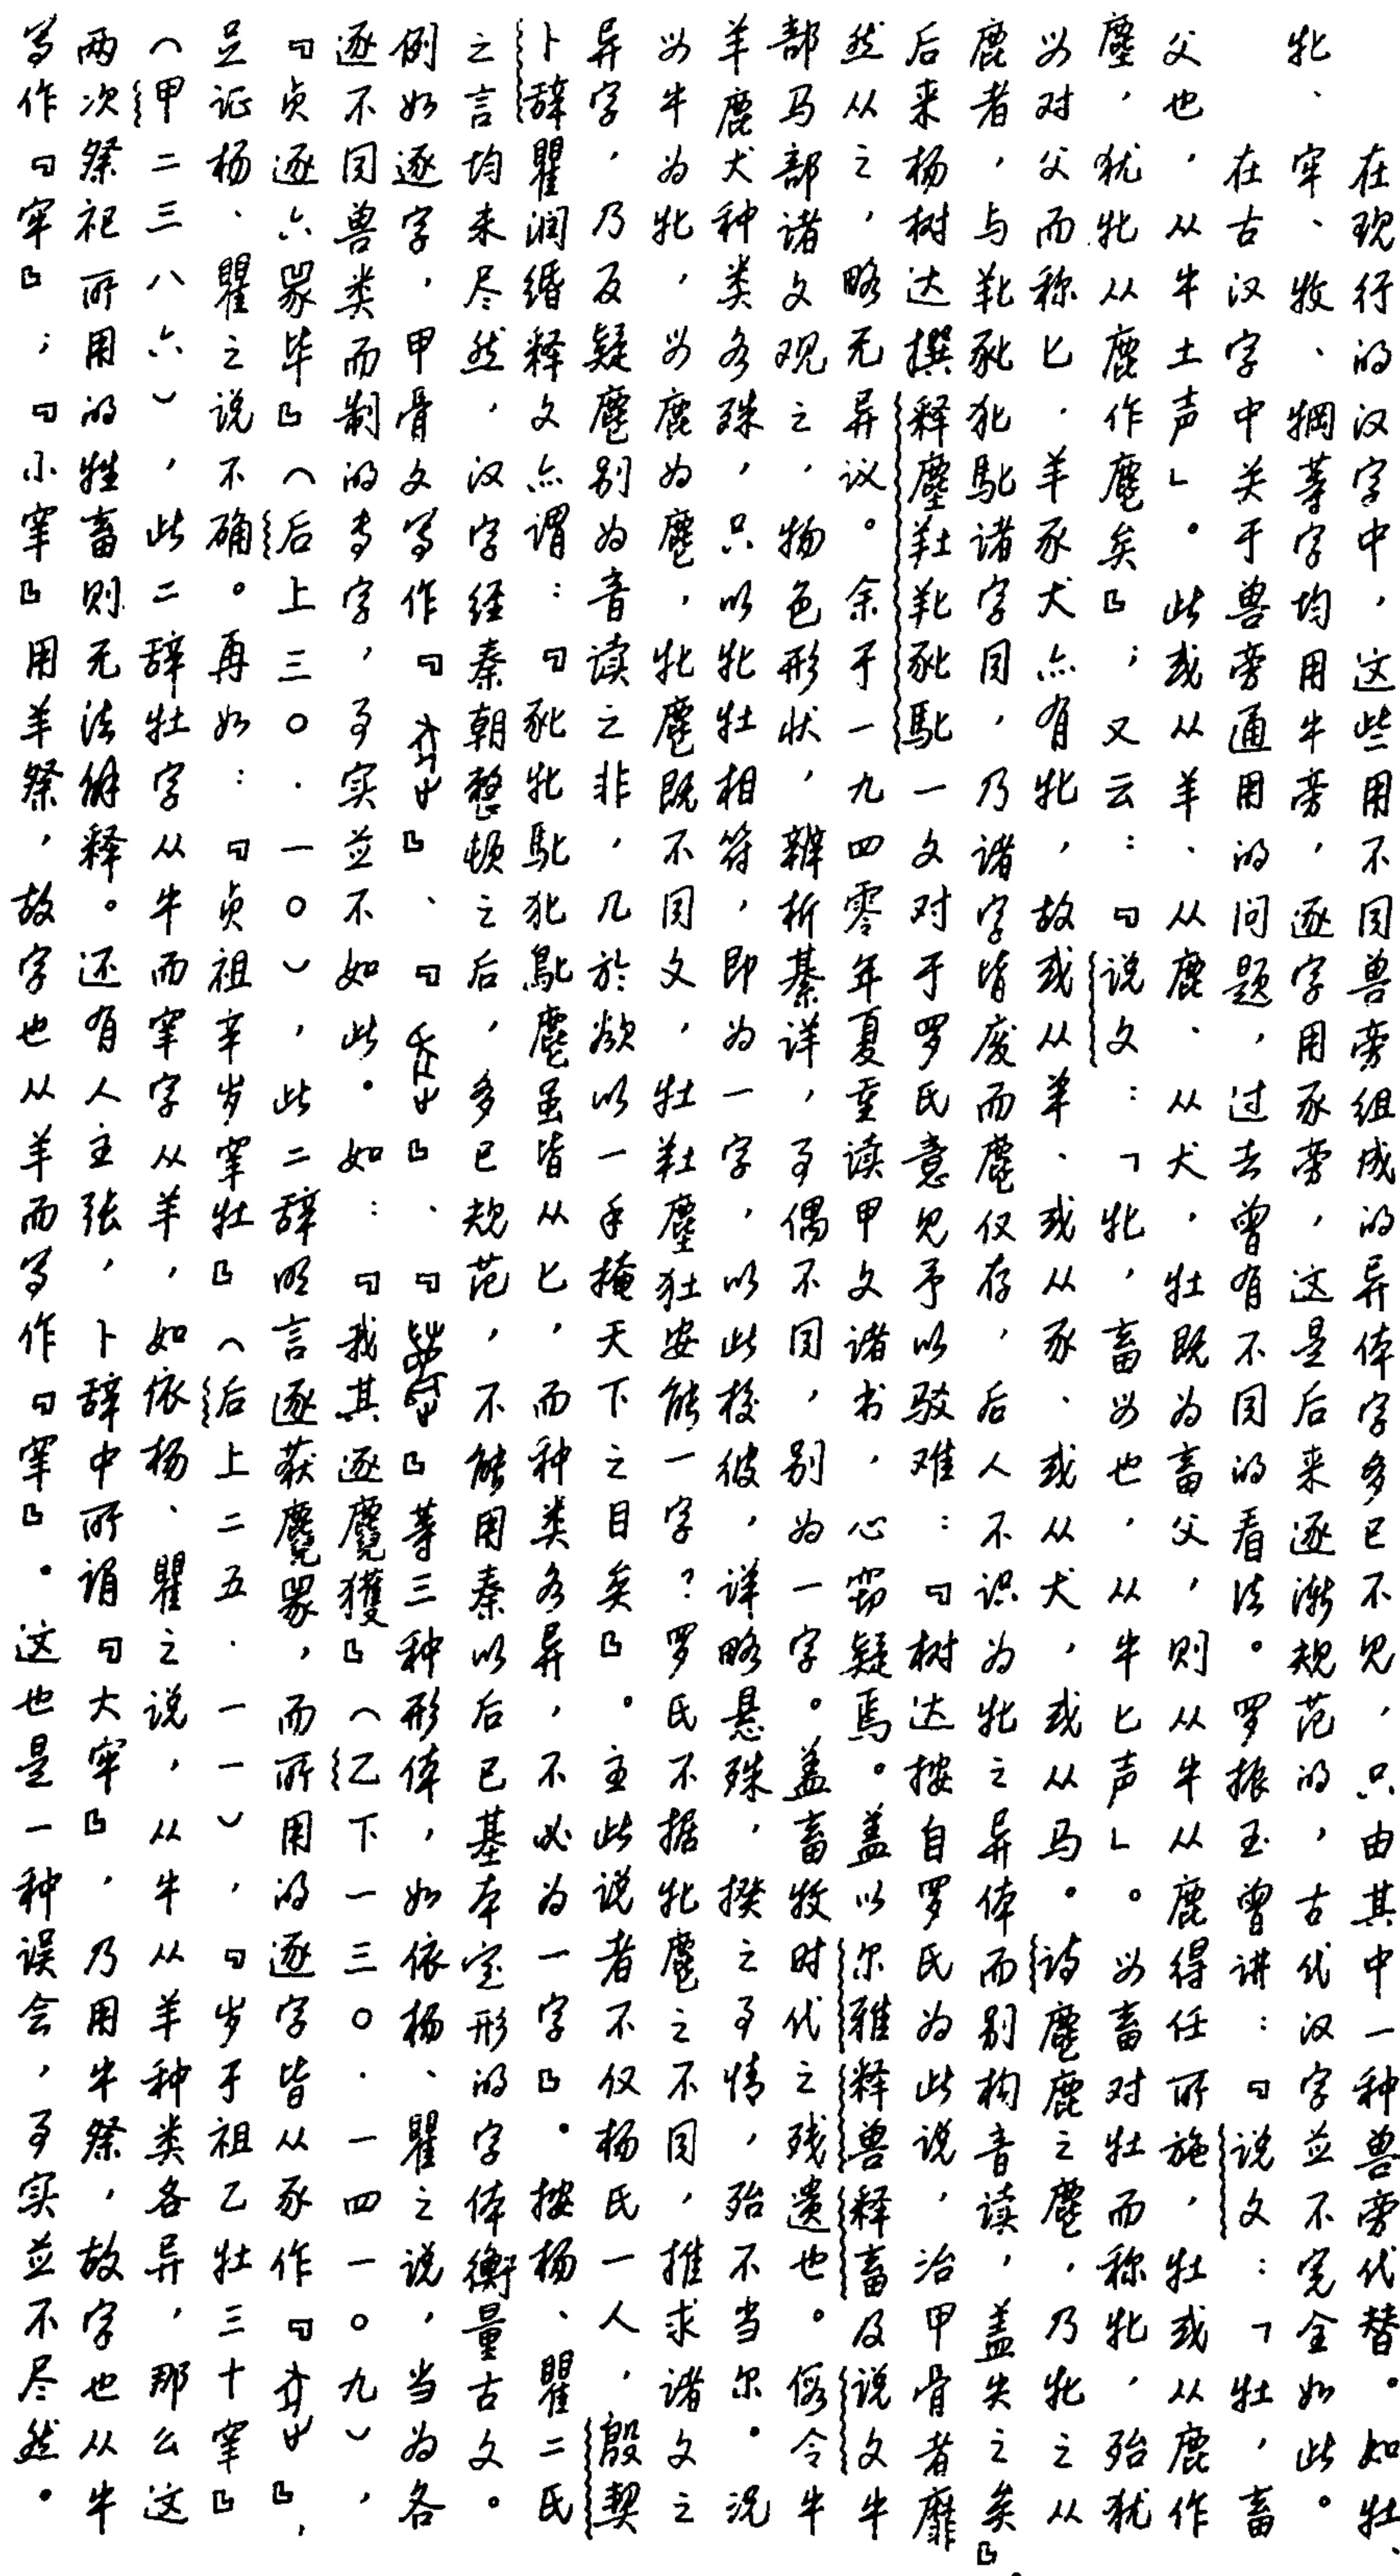 在现行的汉字中，这些用不同兽旁组成的异体字多已不见，只由其中一种兽旁代替。如牡、
牝、牢、牧、犅等字均用牛旁，逐字用豕旁，这是后来逐渐规范的，古代汉字並不完全如此。
在古汉字中关于兽旁通用的问题，过去曾有不同的看法。罗振玉曾讲：『说文：「牡，畜
父也，从牛土声」。此或从羊、从鹿、从犬，牡既为畜父，则从牛从鹿得任所施，牡或从鹿作
麈，犹牝从鹿作麀矣』；又云：『说文：「牝，畜母也，从牛匕声」。母畜对牡而称牝，殆犹
母对父而称匕．羊豕犬亦有牝，故或从羊、或从豕、或从犬，或从马。诗麀鹿之麀，乃牝之从
鹿者，与𦍒豝犯馲诸字同，乃诸字皆废而麀仅存，后人不识为牝之异体而别构音读，盖失之矣』。
后来杨树达撰释麈𦍒豝一文对于罗氏意见予以驳难：『树达按自罗氏为此说，治甲骨者靡
然从之，略无异议。余于一九四零年夏重读甲文诸书，心窃疑焉。盖以尔雅释兽释畜及说文牛
部马部诸文观之，物色形状，辨析綦详，事偶不同，别为一字。盖畜牧时代之残遗也。倘令牛
羊鹿犬种类各殊，只以牝牡相符，即为一字，以此校彼，详略悬殊，揆之事情，殆不当尔。况
母牛为牝，母鹿为麀，牝麀既不同文，牡麈安能一字？罗氏不据牝麀之不同，推求诸文之
异字，乃反疑麀别为音读之非，几於欲以一手掩天下之目矣』。主此说者不仅杨氏一人，殷契
卜辞瞿润缗释文亦谓：『牝麀虽皆从匕，而种类各异，不必为一字』。按杨、瞿二氏
之言均未尽然，汉字经秦朝整顿之后，多已规范，不能用秦以后已基本定形的字体衡量古文。
例如逐字，甲骨文写作『』、『』、『』等三种形体，如依杨、瞿之说，当为各
逐不同兽类而制的专字，事实並不如此。如：『我其逐麑獲』（乙下一三〇．一四一〇九），
『贞逐六兕毕』（后上三〇．一〇），此二辞明言逐获麑兕，而所用的逐字皆从豕作『』，
足证杨、瞿之说不确。再如：『贞祖辛岁牢牡』（后上二五．一一），『岁于祖乙牡三十宰』
（甲二三八六），此二辞牡字从牛而宰字从羊，如依杨、瞿之说，从牛从羊种类各异，那么这
两次祭祀所用的牲畜则无法解释。还有人主张，卜辞中所谓『大牢』，乃用牛祭，故字也从牛
写作『牢』；『小宰』用羊祭，故字也从羊而写作『宰』。这也是一种误会，事实並不尽然。